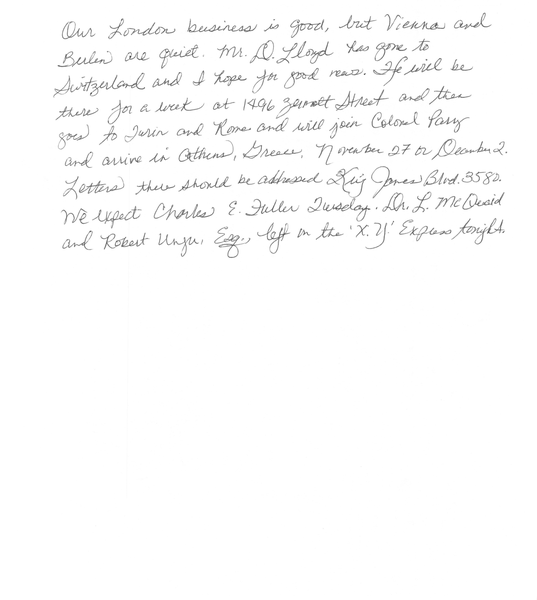 Our London business is good, but Vienna and
Berlin are quiet. Mr. D. Lloyd has gone to
Switzerland and I hope for good news. He will be
there for a week at 1496 Zermott Street and then
goes to Turin and Rome and will join Colonel Parry
and arrive in Athens, Greece, November 27 or December 2.
Letters there should be addressed King James Blvd. 3580.
We expect Charles E. Fuller Tuesday. Dr. L. McQuaid
and Robert Unger, Esq., left on the 'X.Y.' Express tonight.